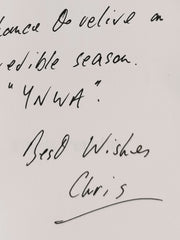 hance to relive an
redible season.
"YNWA".
Best Wishes
Chris